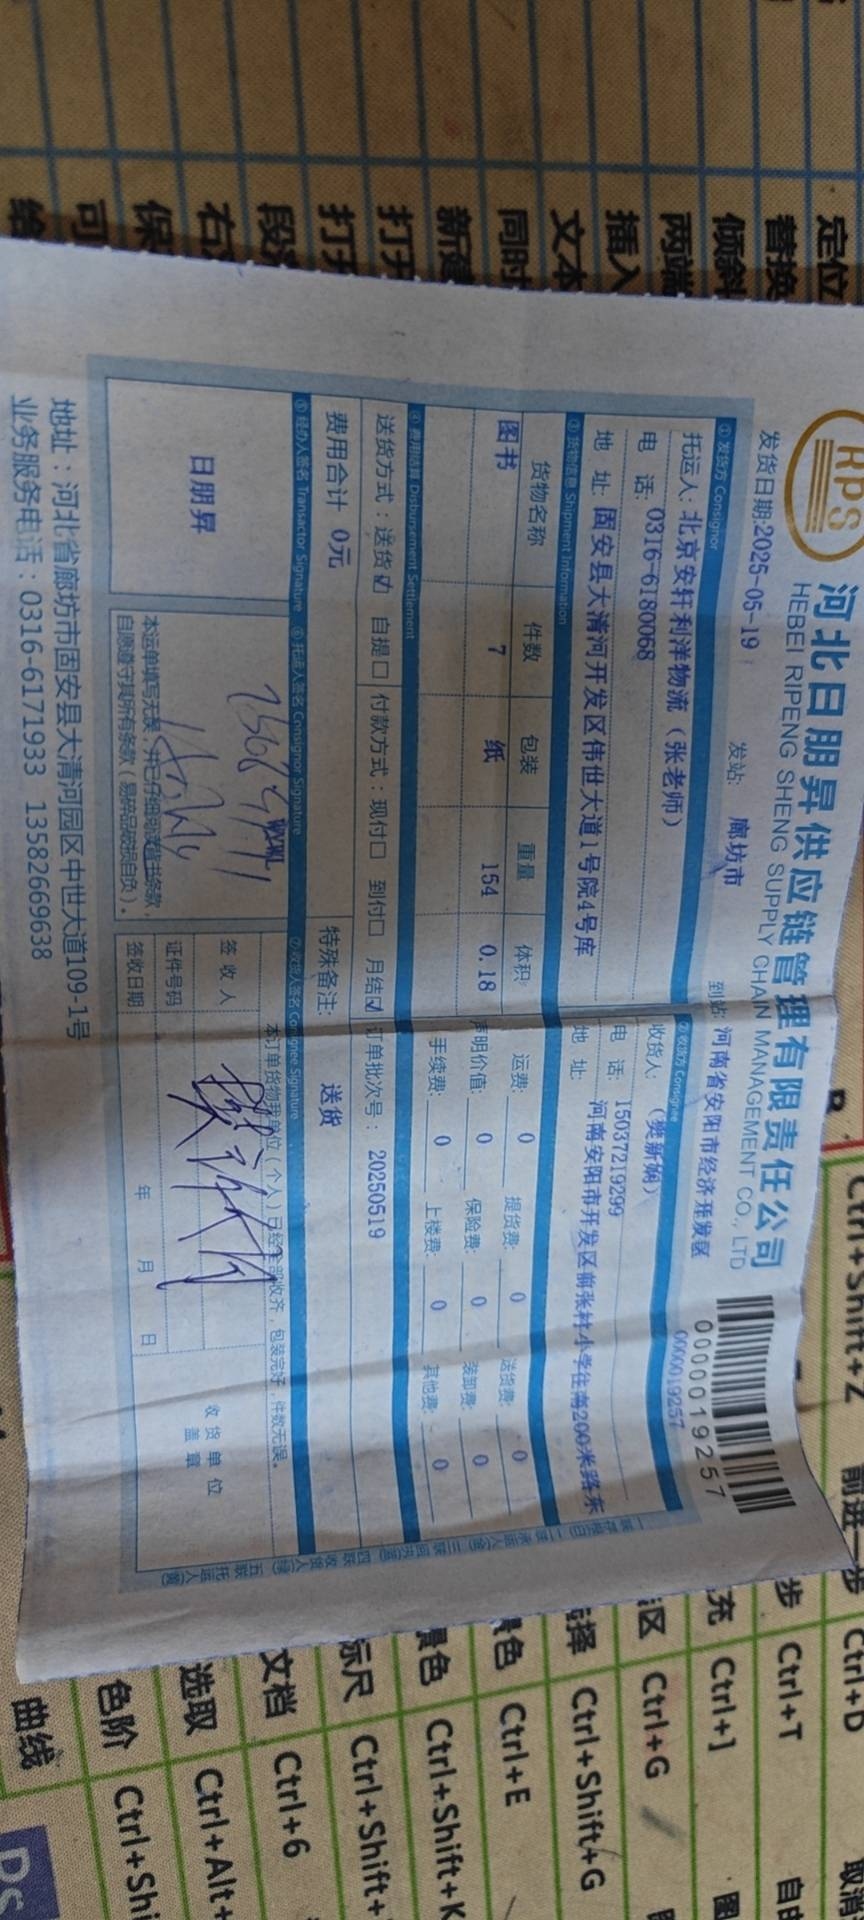 RPS
河北日朋昇供应链管理有限责任公司
HEBEI RIPENG SHENG SUPPLY CHAIN MANAGEMENT CO., LTD
0000019257
发货日期:2025-05-19 发站: 廊坊市 到站: 河南省安阳市经济开发区 0000019257
① 发货方 Consignor ② 收货方 Consignee
托运人: 北京安轩利洋物流（张老师） 收货人: （樊新娴）
电 话: 0316-6180068 电 话: 15037219299
地 址: 固安县大清河开发区伟世大道1号院4号库 地 址: 河南安阳市开发区前张村小学往南200米路东
③ 货物信息 Shipment Information
货物名称 件数 包装 重量 体积 运费: 0 提货费: 0 送货费: 0
图书 7 纸 154 0.18 声明价值: 0 保险费: 0 装卸费: 0
手续费: 0 上楼费: 0 其他费: 0
④ 费用结算 Disbursement Settlement
送货方式: 送货☑ 自提☐ 付款方式: 现付☐ 到付☐ 月结☑ 订单批次号: 20250519
费用合计 0元 特殊备注: 送货
⑤ 经办人签名 Transactor Signature ⑥ 托运人签名 Consignor Signature ⑦ 收货人签名 Consignee Signature
日朋昇
本订单货物我单位（个人）已经全部收齐，包装完好，件数无误。
签 收 人
证件号码
签收日期 年 月 日
收货单位
盖章
自愿遵守其所有条款（易碎品破损自负）。
地址：河北省廊坊市固安县大清河园区中世大道109-1号
业务服务电话：0316-6171933 13582669638
定位
替换
倾斜
两端
插入
文本
同时
新建
打开
打开
右
保
可
Ctrl+Shift+Z 前进一步 Ctrl+D 取消
步 Ctrl+T 自由
充 Ctrl+]
区 Ctrl+G
选择 Ctrl+Shift+G
景色 Ctrl+E
景色 Ctrl+Shift+K
标尺 Ctrl+Shift+
文档 Ctrl+6
选取 Ctrl+Alt+
色阶 Ctrl+Shi
曲线
Ps